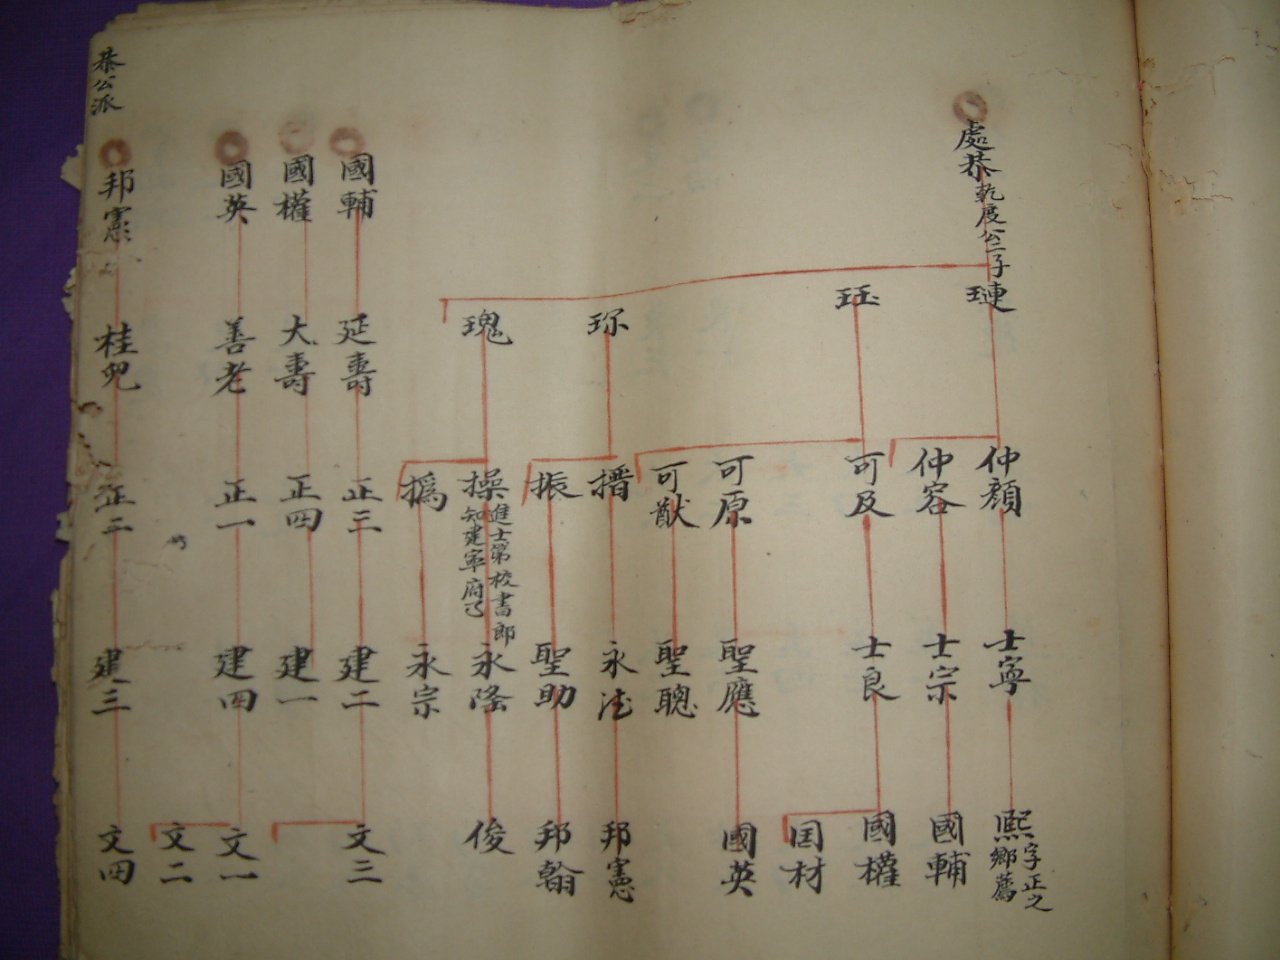 處恭 乾度公二子
璉
珏
珎
瑰
仲顏
仲容
可及
可原
可猷
搢
振
操 進士第校書郎知建寧府事
撝
士寧
士宗
士良
聖應
聖聰
永德
聖助
永隆
永宗
熙 字正之鄉薦
國輔
國權
国材
國英
邦憲
邦翰
俊
國輔
延壽
正三
建二
文三
國權
大壽
正四
建一
國英
善老
正一
建四
文一
文二
邦憲
桂兒
正二
建三
文四
恭公派